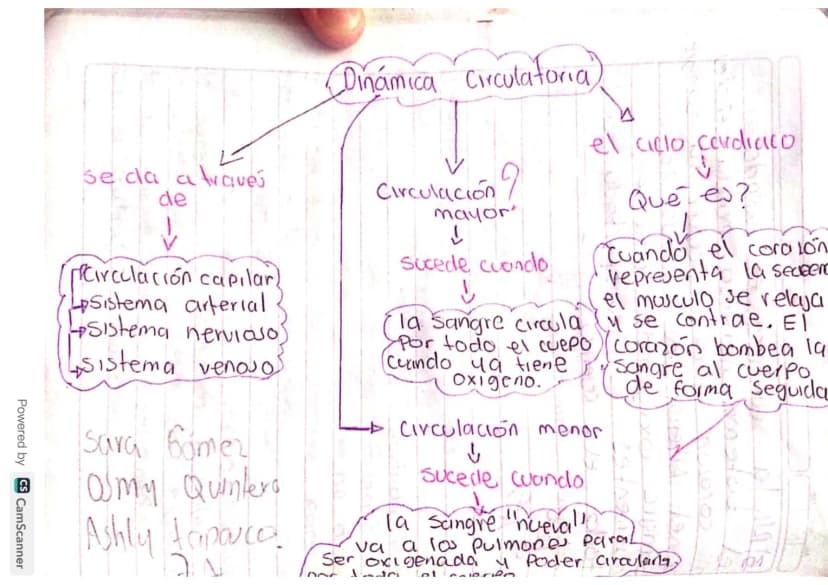 Dinámica Circulatoria
se da a través
de
Circulación capilar
Sistema arterial
Sistema nervioso
Sistema venoso
Circulación
mayor
sucede cuando
la sangre circula
por todo el cuepo
cuando ya tiene
oxigeno.
Circulación menor
sucede cuando
la sangre "nueva"
va a los pulmones para
ser oxigenada y poder circular
el ciclo cardiaco
Qué es?
Cuando el corazón
representa la
el musculo se relaja
y se contrae. El
corazón bombea la
sangre al cuerpo
de forma seguida
Sara Gómez
Osmy Quintero
Ashly
Powered by CS CamScanner